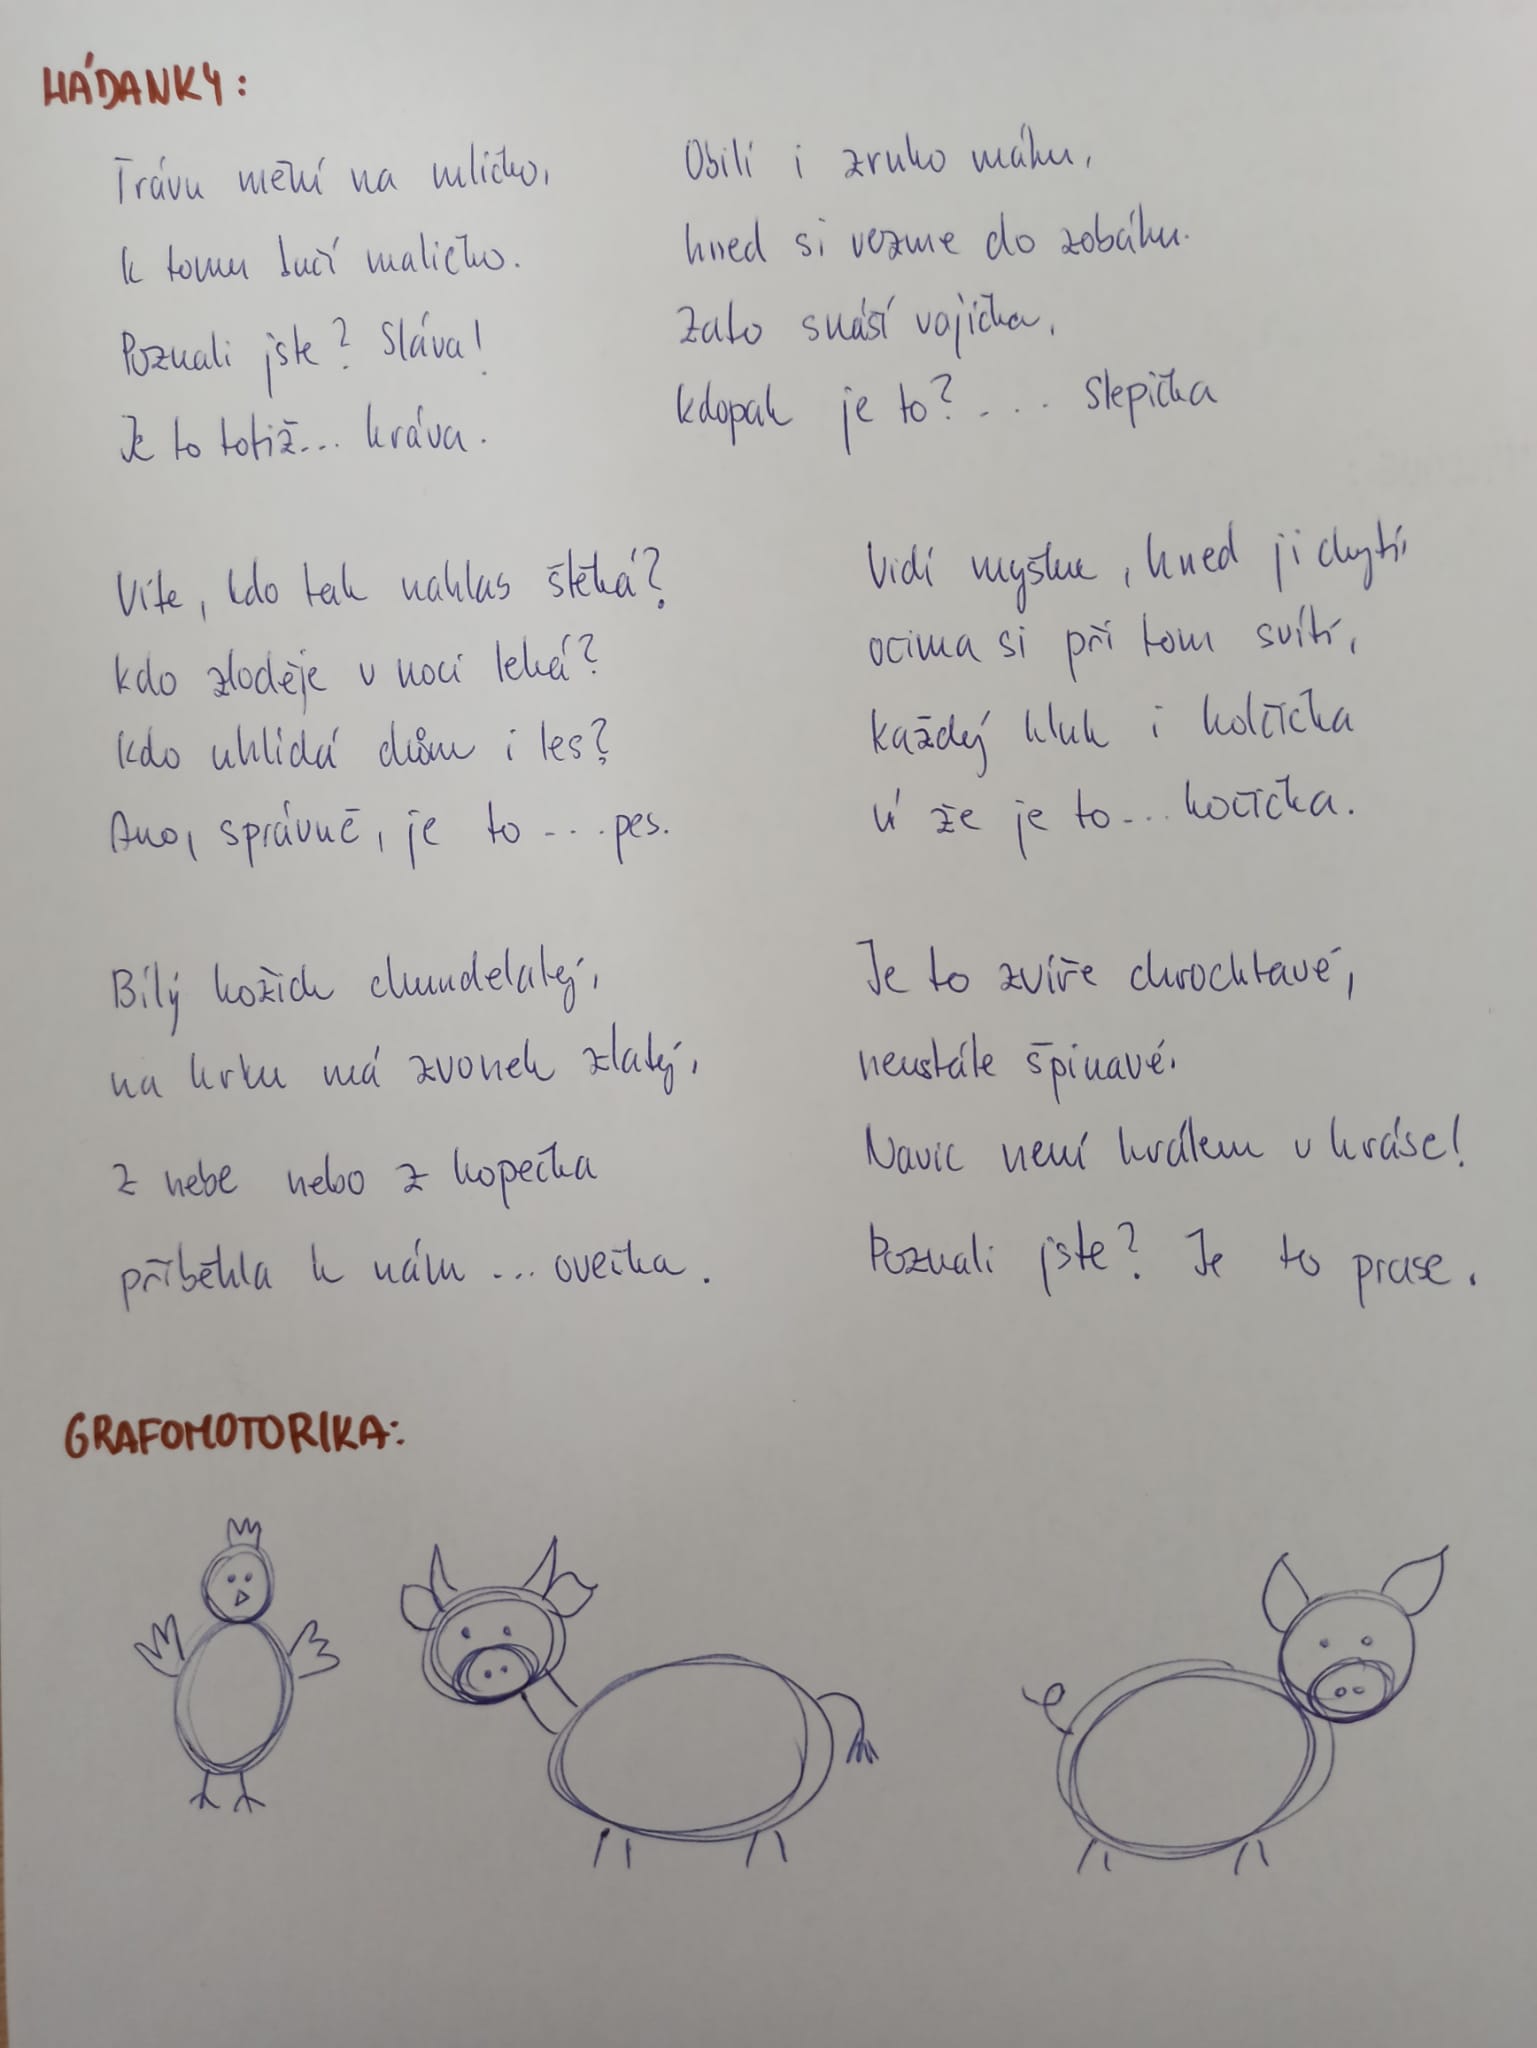 HÁDANKY:
Trávu mění na mlíčko,
k tomu bučí maličko.
Poznali jste? Sláva!
Je to totiž... kráva.
Obilí i zrnko máku,
hned si vezme do zobáku.
Zato snáší vajíčka,
kdopak je to?.... Slepička
Víte, kdo tak nahlas štěká?
kdo zloděje v noci leká?
kdo uhlídá dům i les?
Ano, správně, je to ... pes.
Vidí myšku, hned ji chytí,
očima si při tom svítí,
každý kluk i holčička
ví že je to... kočička.
Bílý kožich chundelatý,
na krku má zvonek zlatý,
z nebe nebo z kopečka
příběhla k nám ... ovečka.
Je to zvíře chrochtavé,
neustále špinavé.
Navíc není králem v kráse!
Poznali jste? Je to prase.
GRAFOMOTORIKA: